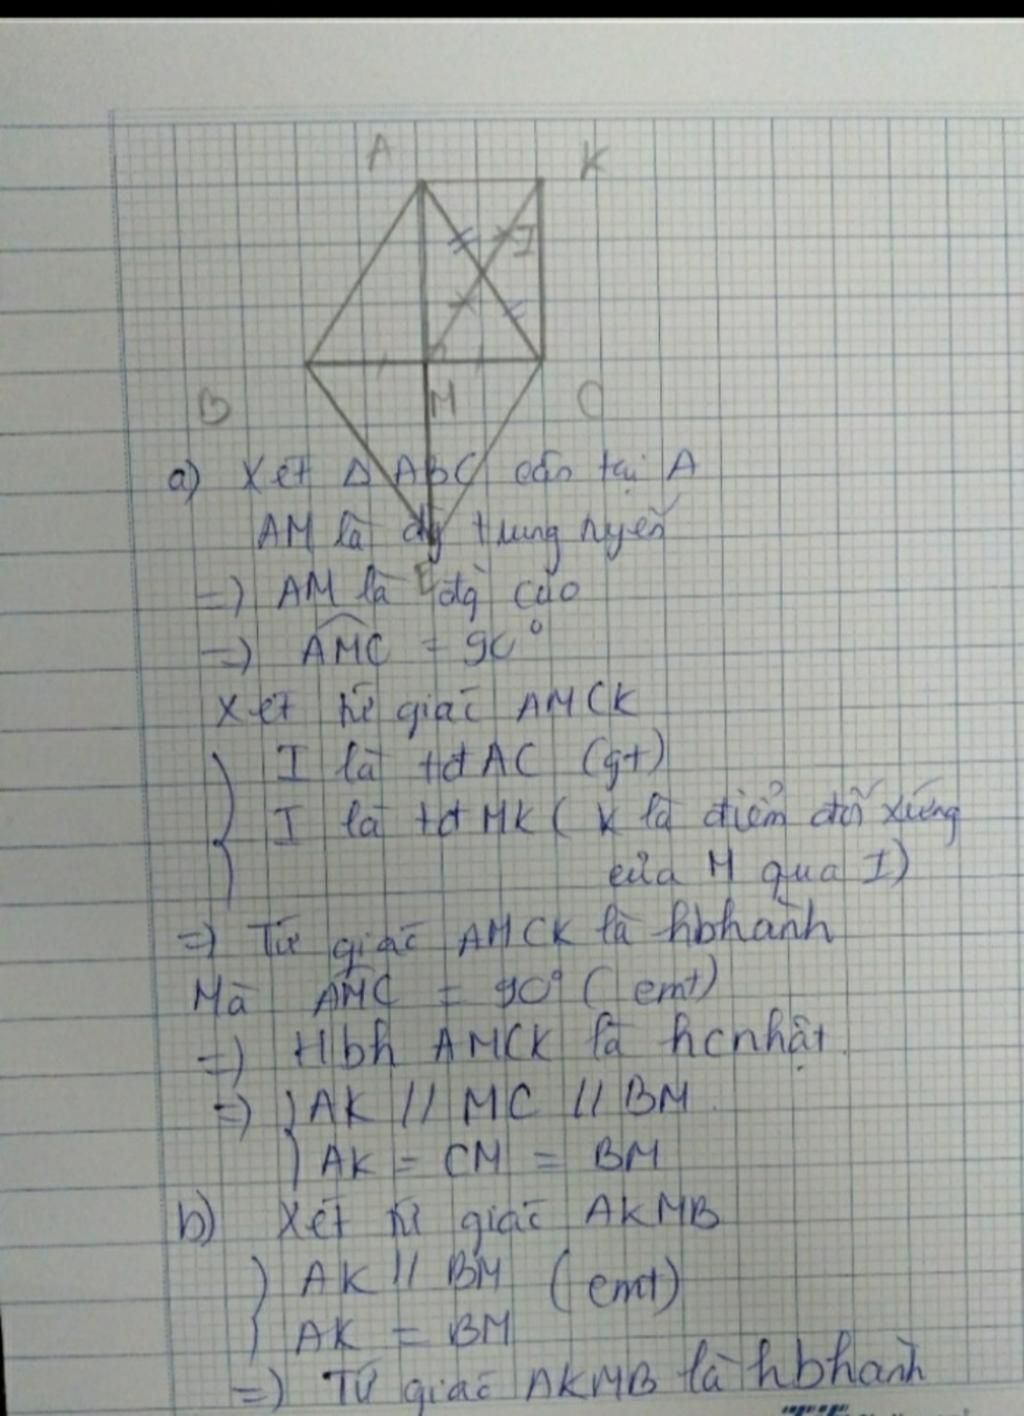 A K
I
B M C
a) Xét Δ ABC cân tại A
AM là đg trung tuyến
E
=) AM là đg cao
=) AMC = 90°
Xét tứ giác AMCK
I là tđ AC (gt)
I là tđ MK ( K là điểm đối xứng
của M qua I)
=) Tứ giác AMCK là hbhành
Mà AMC = 90° ( cmt)
=) Hbh AMCK là hcnhật
=) AK // MC // BM
AK = CM = BM
b) Xét tứ giác AKMB
AK // BM (cmt)
AK = BM
=) Tứ giác AKMB là hbhành